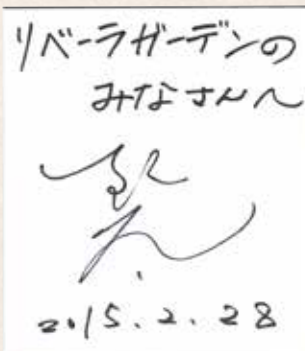 リベーラガーデンの
みなさんへ
2015.2.28